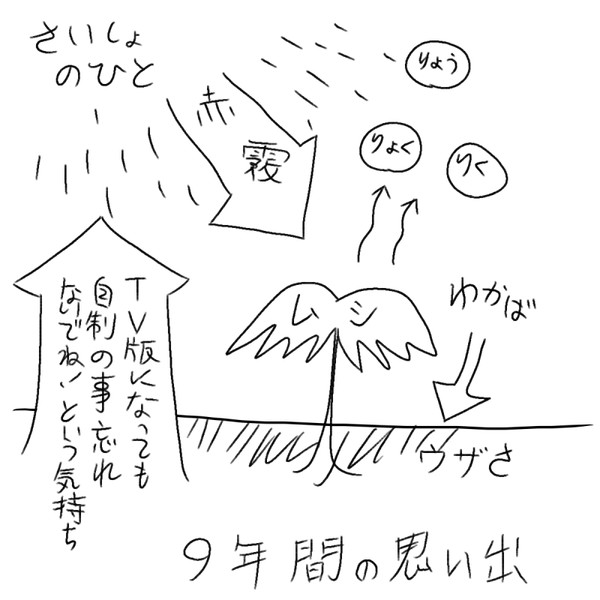 さいしょ
のひと
赤
霞
りょう
りょく
りく
ムシ
わかば
ウザさ
TV版になっても
自制の事忘れ
ないでね！という気持ち
9年間の思い出